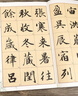 盈昃辰宿列
張寒來暑往
秋收冬藏閏
餘成歲律呂